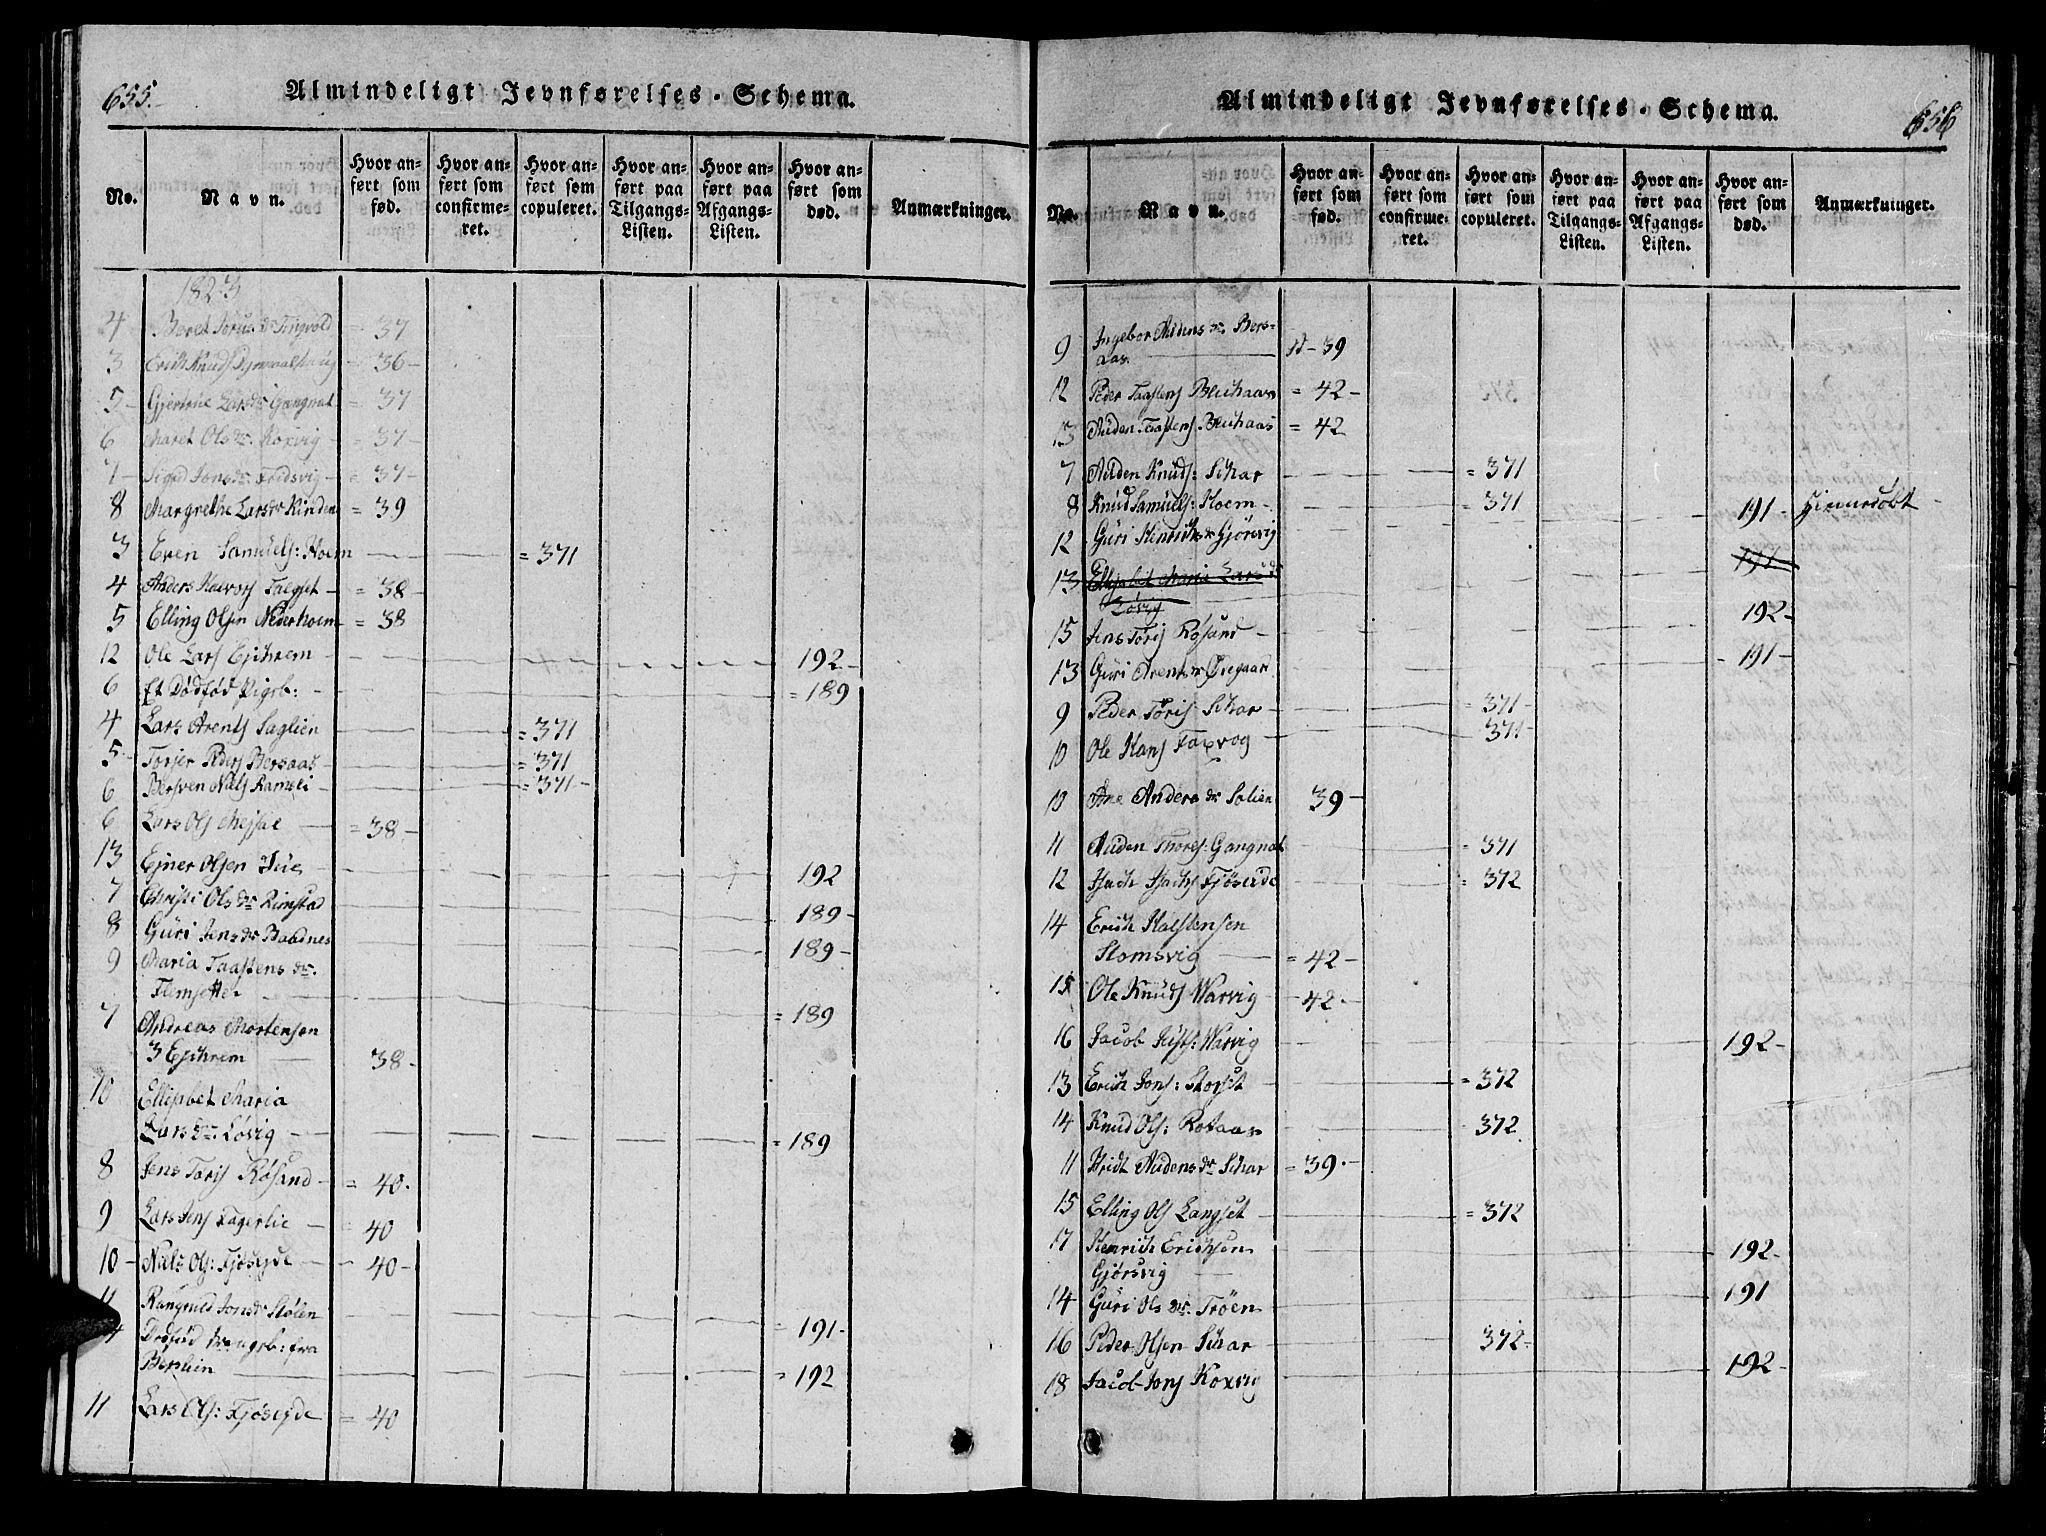 655.
Almindeligt Jevnførelses-Schema.
No.
Navn.
Hvor anført som fød.
Hvor anført som confirmeret.
Hvor anført som copuleret.
Hvor anført paa Tilgangs-Listen.
Hvor anført paa Afgangs-Listen.
Hvor anført som død.
Anmærkninger.
1823
4 Beret Torus dr Tingvold = 37
3 Erich Knuds = 36 -
5 - Gjertrue Lars dr Gangnat - = 37
6 Maret Ols dr. Koxvig - = 37 -
7 - Sigrid Jons dr. Fredsvig - = 37 -
8 Margrethe Lars dr Rinden = 39
3 Even Samuels: Hoem = 371
4 Anders Halvors Talgset - = 38 -
5 Elling Olsen Nederhoem - = 38
12 Ole Lars Ejchrem - 192 -
6 Et Dødfød Pigeb: - = 189
4 Lars Arents Saglien = 371
5 - Torjer Peders Bersaas - = 371
6 Bersven Niels Ramsli - = 371 -
6 Lars Ols Mejsal = 38 -
13 Ejner Olsen Heie 192
7 Christi Ols dr Rimstad 189 -
8 Guri Jens dr Baadnes 189 -
9 Maria Taastens dr.
Flemsetter = 189
7 Andreas Mortensen
3 Ejchrem 38 -
10 Ellisabet Maria
Lars dr. Løvig - = 189
8 Jens Toris Røsand - = 40.
9 Lars Jens Fagerlie - 40
10 - Niels Ols: Fjøseyde - 40 -
11 Rangnild Jons dr Stølen 191 -
14 Dødfød Drengeb: fra
Berslien = 192
11 Lars Ols: Fjøseyde = 40
Almindeligt Jevnførelses-Schema.
656
No.
Navn.
Hvor anført som fød.
Hvor anført som confirmeret.
Hvor anført som copuleret.
Hvor anført paa Tilgangs-Listen.
Hvor anført paa Afgangs-Listen.
Hvor anført som død.
Anmærkninger.
9 Ingebor Audens dr. Bers-
aas - 39
12 Peder Taastens Bleihaas = 42 -
13 Auden Taastens Bleihaas = 42
7 Auden Knuds: Schar = 371
8 Knud Samuels: Hoem - = 371
12 Guri Henrichs dr Gjørsvig 191 - Hiemedøbt
13 Ellisabet Maria Lars dr
Løvig 191
15 Jens Toris Røsand - 192 -
13 Guri Arents dr Øregaar - 191 -
9 Peder Toris Schar - = 371 -
10 Ole Hans Taxvog 371 -
10 Ane Anders dr Solien 39 -
11 Auden Thores: Gangnat = 371
12 Isach Isachs Fjøseide = 372
14 Erich Halstensen
Stomsvig = 42 -
15 Ole Knuds Warvig - 42 -
16 Jacob Justs: Warvig 192 -
13 Erich Jons: Storset = 372
14 Knud Ols: Rotaas 372
11 Audens dr Schar = 39 -
15 Elling Ols Langset = 372
17 Henrich Erichsen
Gjørsvig 192 -
14 Guri Ols dr. Trøen 191
16 Peder Olsen Schar 372 -
18 Jacob Jons Koxvig 192 -